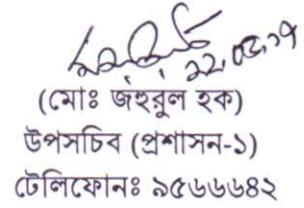 ২২.০৫.১৭
(মোঃ জহুরুল হক)
উপসচিব (প্রশাসন-১)
টেলিফোনঃ ৯৫৬৬৬৪২